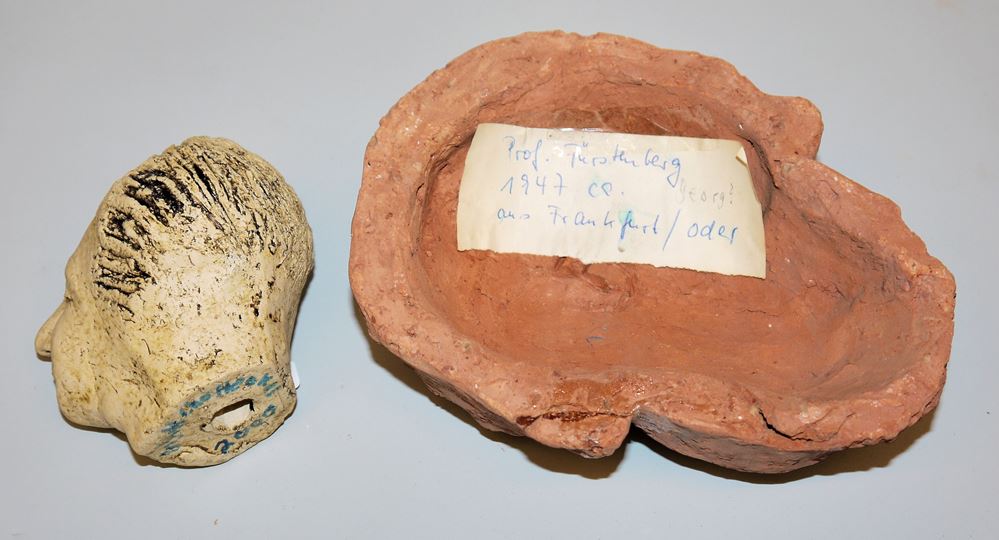 Prof. Fürstenberg
1947 ca.
Georg?
aus Frankfurt/oder
2000